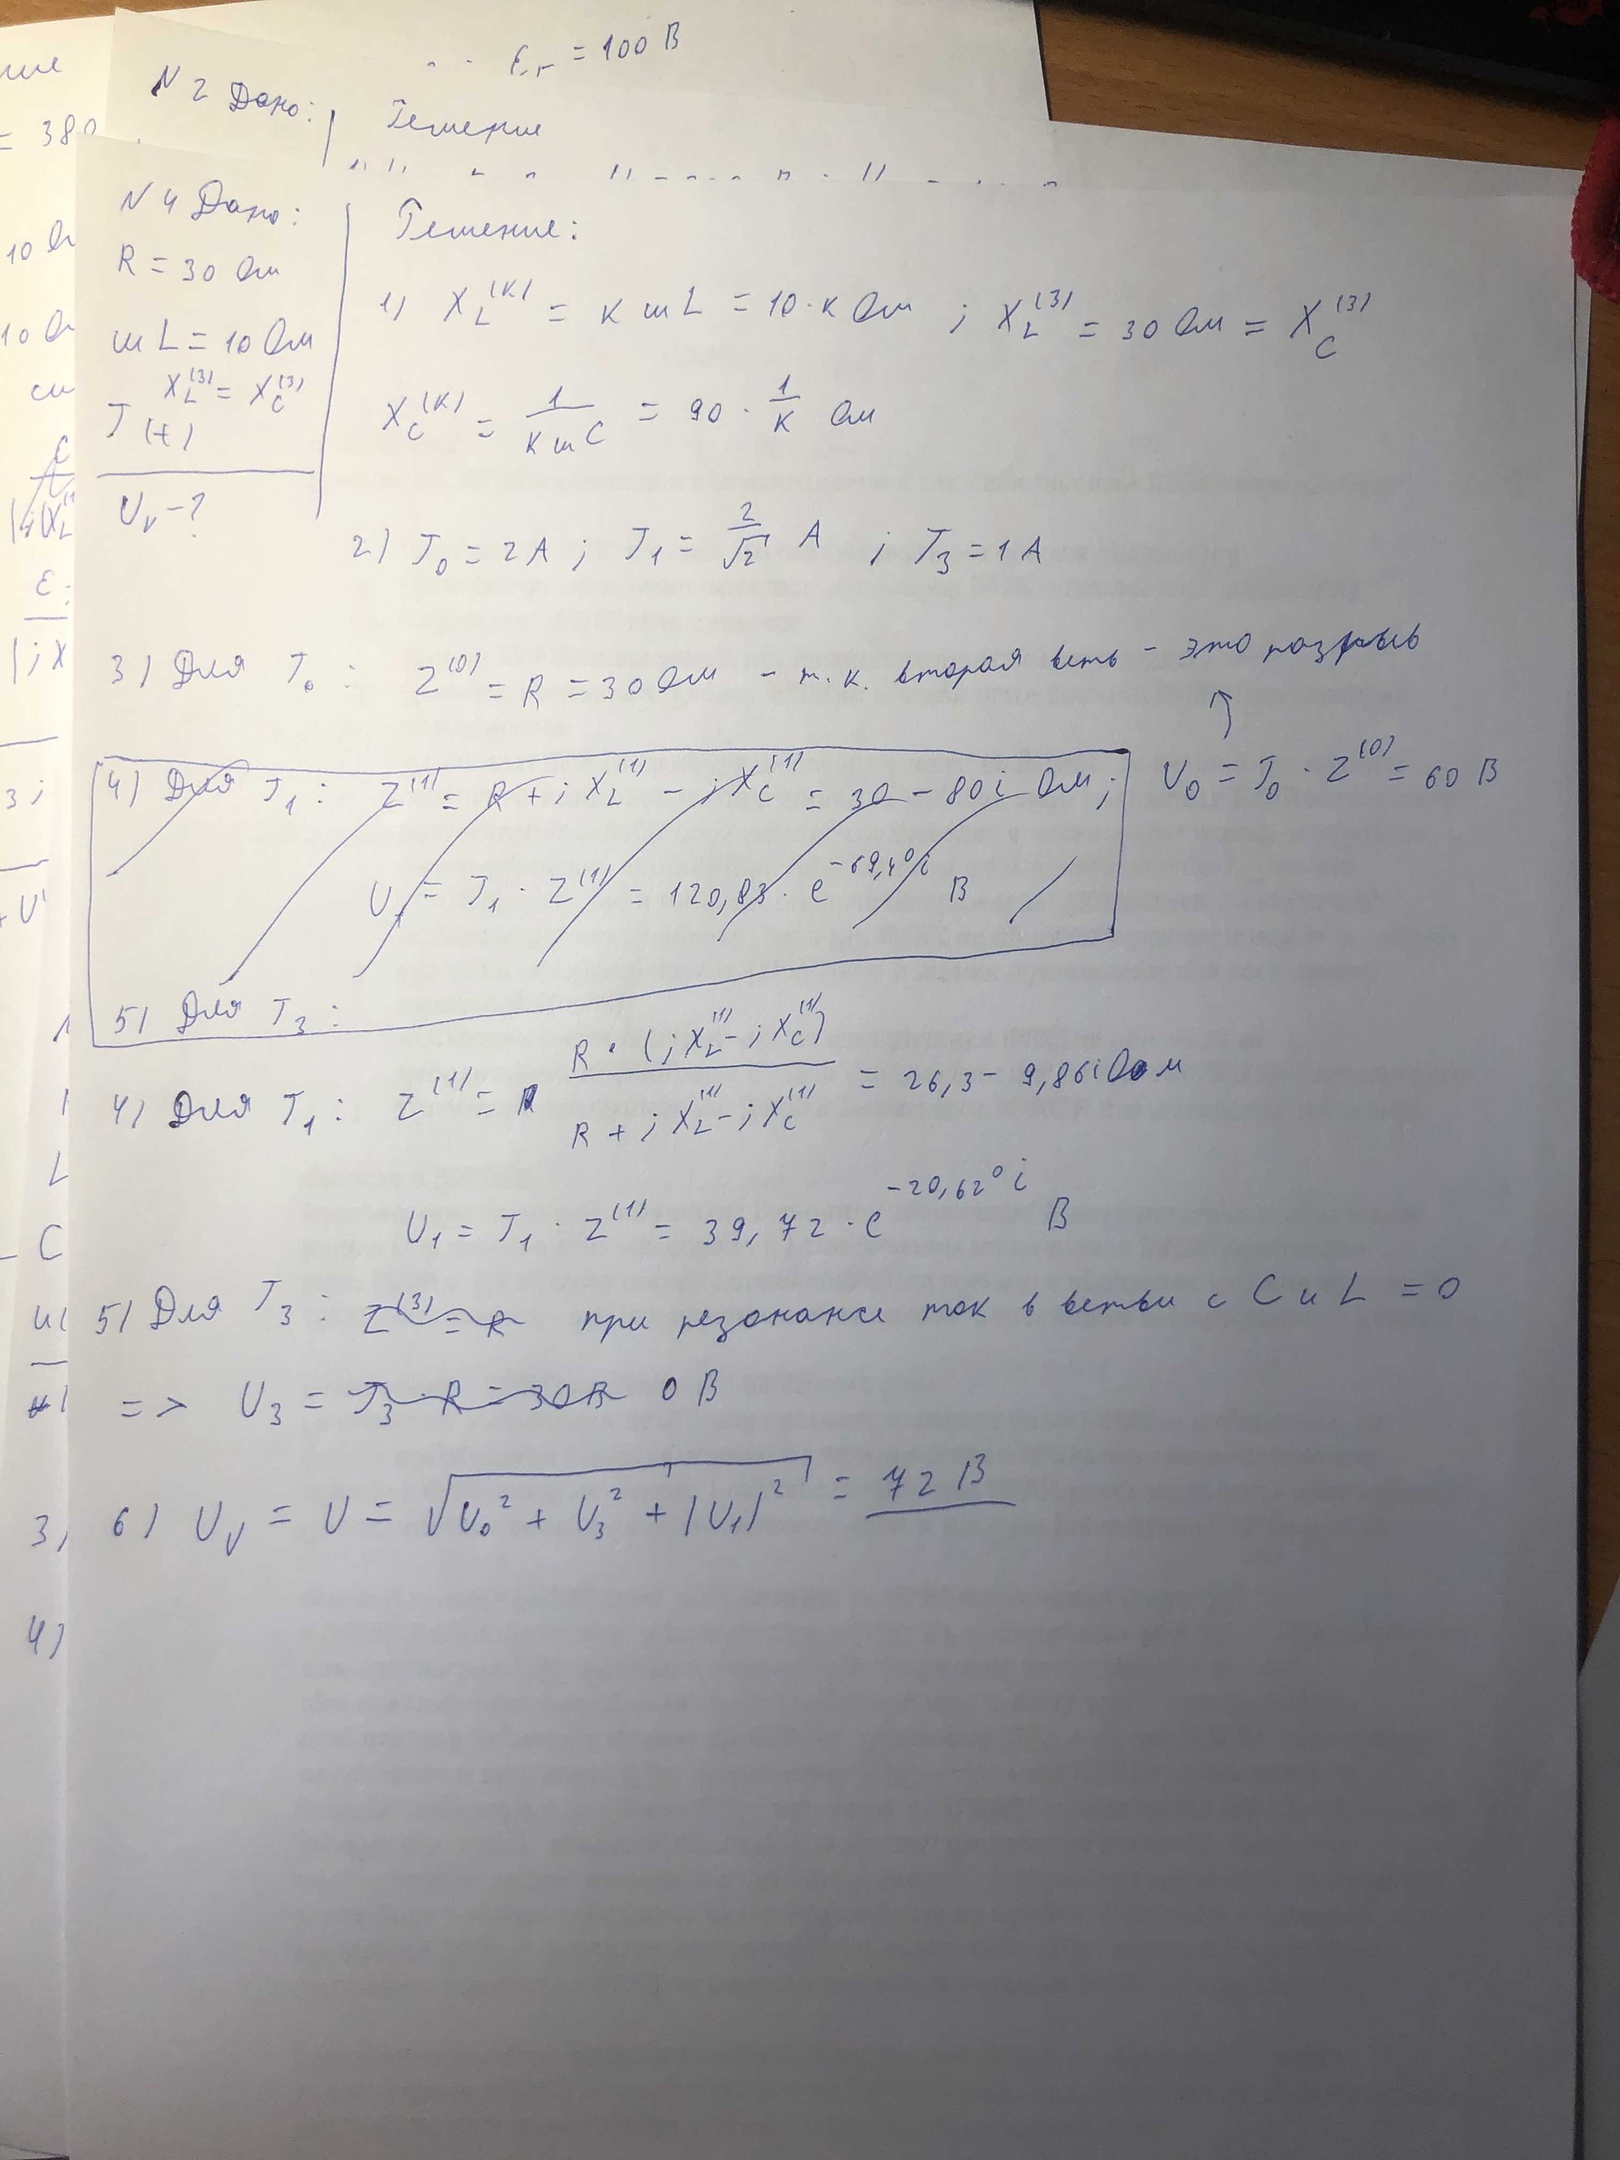 = 100 В
N 2 Дано:
Решение
= 380
N 4 Дано:
R = 30 Ом
ωL = 10 Ом
X_L^(3) = X_C^(3)
J(t)
U_V - ?
Решение:
1) X_L^(K) = K ωL = 10·K Ом ; X_L^(3) = 30 Ом = X_C^(3)
X_C^(K) = 1/(KωC) = 90 · 1/K Ом
2) J_0 = 2 А ; J_1 = 2/√2 А ; J_3 = 1 А
3) Для J_0 : Z^(0) = R = 30 Ом - т.к. вторая ветвь - это разрыв
U_0 = J_0 · Z^(0) = 60 В
4) Для J_1 : Z^(1) = R + jX_L^(1) - jX_C^(1) = 30 - 80i Ом;
U_1 = J_1 · Z^(1) = 120,83 · e^(-69,4°i) В
5) Для J_3 :
4) Для J_1 : Z^(1) = R·(jX_L^(1) - jX_C^(1)) / (R + jX_L^(1) - jX_C^(1)) = 26,3 - 9,86i Ом
U_1 = J_1 · Z^(1) = 39,72 · e^(-20,62°i) В
5) Для J_3 : Z^(3) = R при резонансе ток в ветви с C и L = 0
=> U_3 = J_3 · R = 30 В 0 В
6) U_V = U = √(U_0² + U_3² + |U_1|²) = 72 В